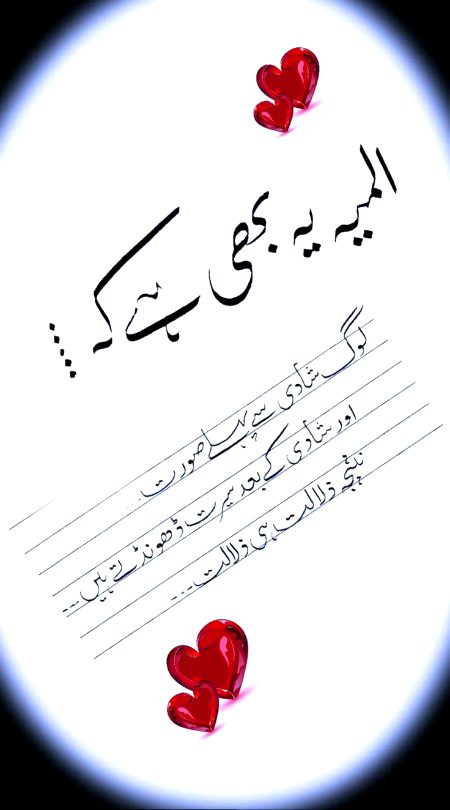 المیہ یہ بھی ہے کہ ....
لوگ شادی سے پہلے صورت
اور شادی کے بعد سیرت ڈھونڈتے ہیں ...
نتیجہ ذلالت ہی ذلالت ...